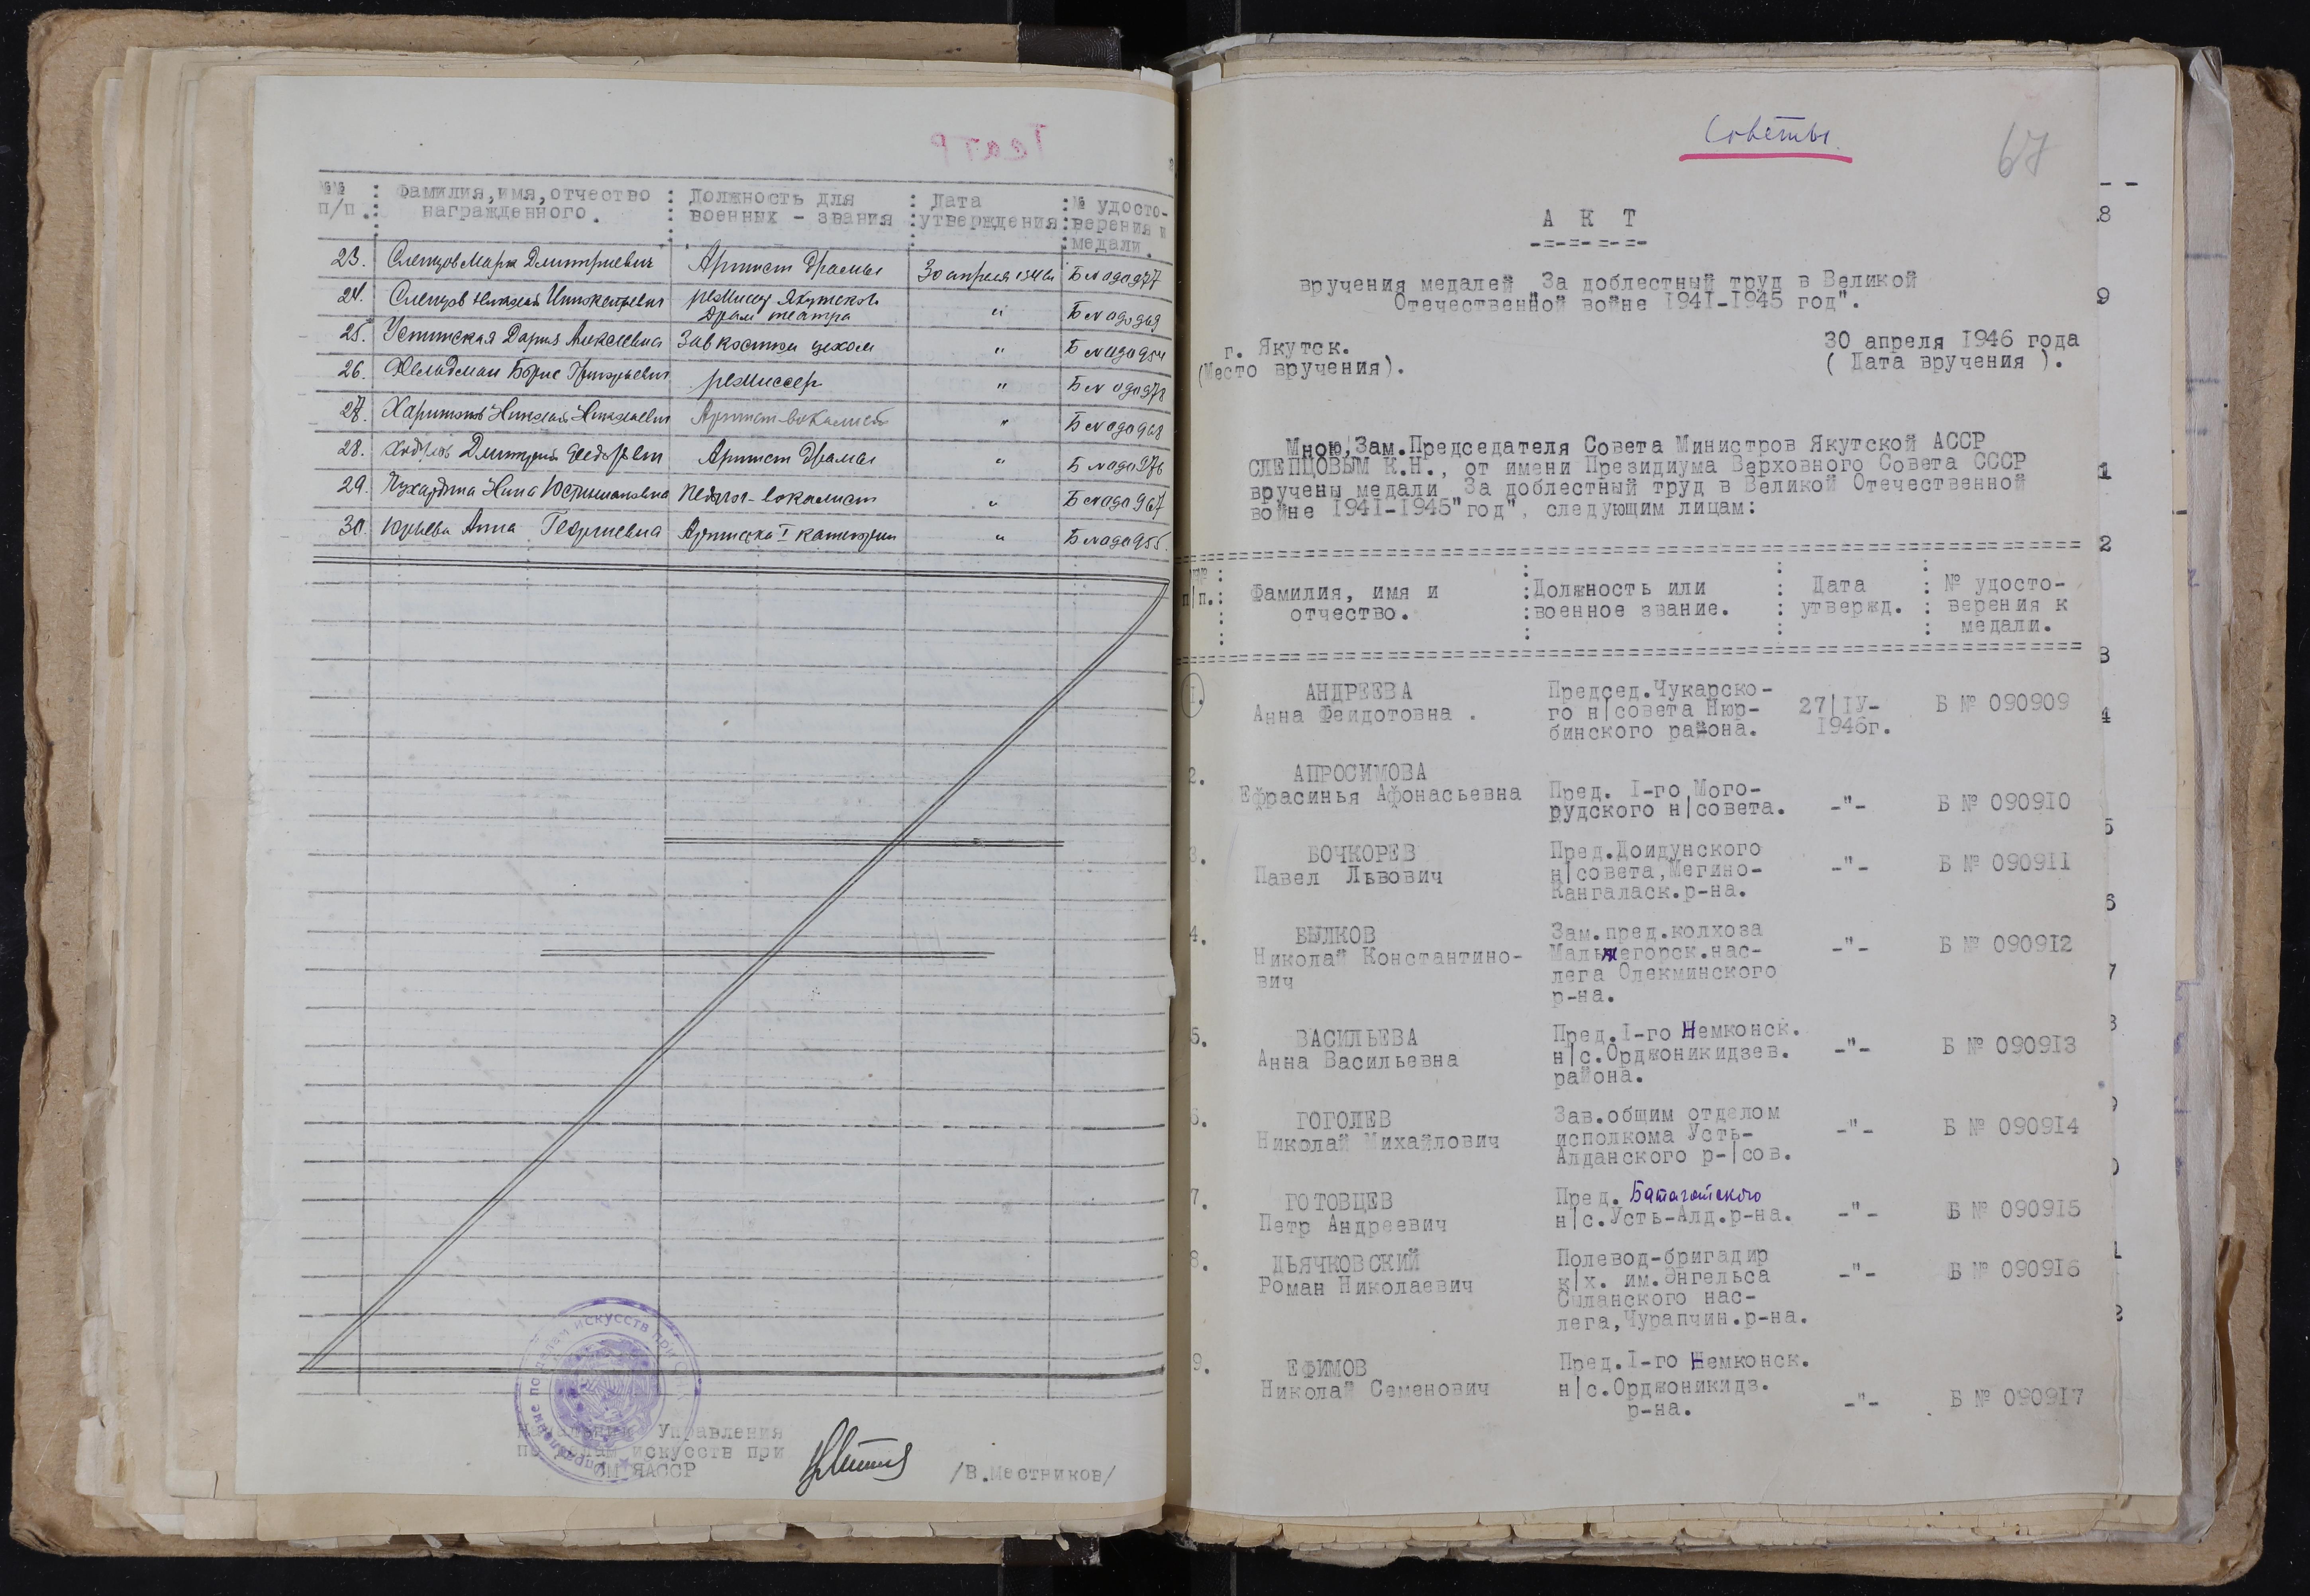 Театр
№№ п/п. Фамилия, имя, отчество награжденного. Должность для военных - звания Дата утверждения № удосто-верения и медали.
23. Слепцов Марк Дмитриевич Артист драмы 30 апреля 1946г Б № 090977
24. Слепцов Николай Иннокентьевич режиссер Якутского Драм театра " Б № 090969
25. Устинская Дария Алексеевна Зав костюм цехом " Б № 090954
26. Фельдман Борис Григорьевич режиссер " Б № 090978
27. Харитонов Николай Николаевич Артист-вокалист " Б № 090968
28. Ходулов Дмитрий Федорович Артист драмы " Б № 090976
29. Чухардина Нина педагог-вокалист " Б № 090967
30. Юрьева Анна Георгиевна Артистка I категории " Б № 090955.
Начальник Управления
по делам искусств при
СМ ЯАССР
/В.Местников/
Управление по делам искусств при
Советы
67
А К Т
-=-=-=-=-
вручения медалей "За доблестный труд в Великой
Отечественной войне 1941-1945 год".
г. Якутск.
(Место вручения).
30 апреля 1946 года
( Дата вручения ).
Мною, Зам.Председателя Совета Министров Якутской АССР
СЛЕПЦОВЫМ К.Н., от имени Президиума Верховного Совета СССР
вручены медали "За доблестный труд в Великой Отечественной
войне 1941-1945 год", следующим лицам:
№№ п|п. Фамилия, имя и отчество. Должность или военное звание. Дата утвержд. № удосто-верения к медали.
1. АНДРЕЕВА
Анна Феидотовна .
Председ.Чукарско-
го н|совета Нюр-
бинского района.
27|IУ-
1946г.
Б № 090909
2. АПРОСИМОВА
Ефрасинья Афонасьевна
Пред. I-го Мого-
рудского н|совета.
-"-
Б № 090910
3. БОЧКОРЕВ
Павел Львович
Пред.Доидунского
н|совета,Мегино-
Кангаласк.р-на.
-"-
Б № 090911
4. БЫЛКОВ
Николай Константино-
вич
Зам.пред.колхоза
Мальжегорск.нас-
лега Олекминского
р-на.
-"-
Б № 090912
5. ВАСИЛЬЕВА
Анна Васильевна
Пред.I-го Немконск.
н|с.Орджоникидзев.
района.
-"-
Б № 090913
6. ГОГОЛЕВ
Николай Михайлович
Зав.общим отделом
исполкома Усть-
Алданского р-|сов.
-"-
Б № 090914
7. ГОТОВЦЕВ
Петр Андреевич
Пред. Батагайского
н|с.Усть-Алд.р-на.
-"-
Б № 090915
8. ДЬЯЧКОВСКИЙ
Роман Николаевич
Полевод-бригадир
к|х. им.Энгельса
Сыланского нас-
лега,Чурапчин.р-на.
-"-
Б № 090916
9. ЕФИМОВ
Николай Семенович
Пред.I-го Немконск.
н|с.Орджоникидз.
р-на.
-"-
Б № 090917